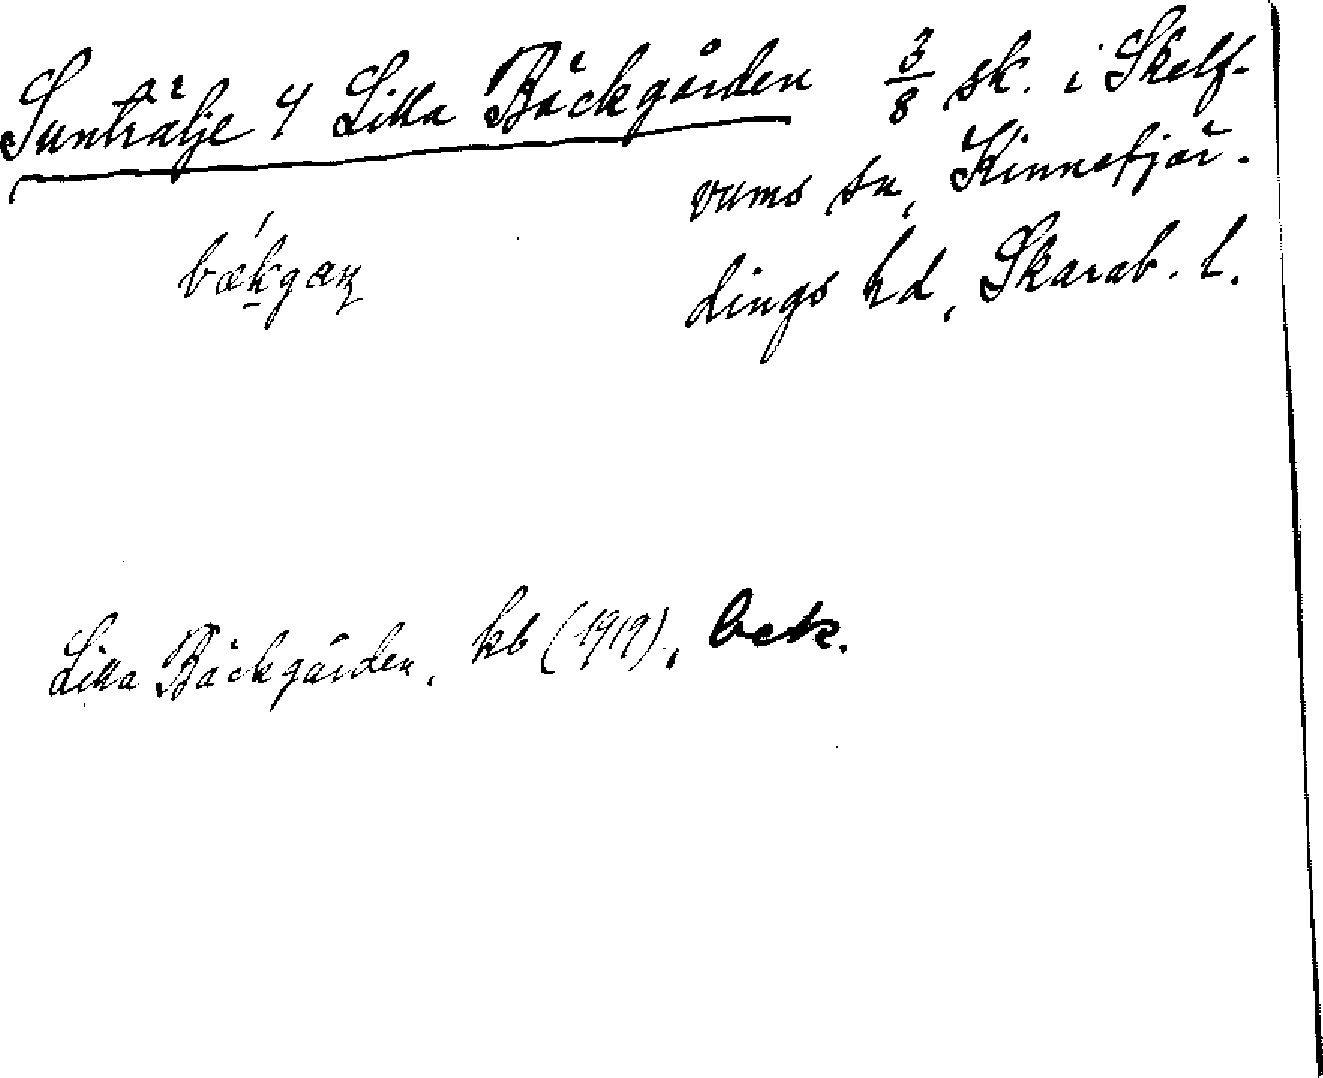 Sunträlje 4 Lilla Bäckgården 3/8 sk. i Skelf-
vums sn, Kinnefjär-
dings hd, Skarab. l.
bækgaɳ
Lilla Bäckgården, kb (1919), bek.